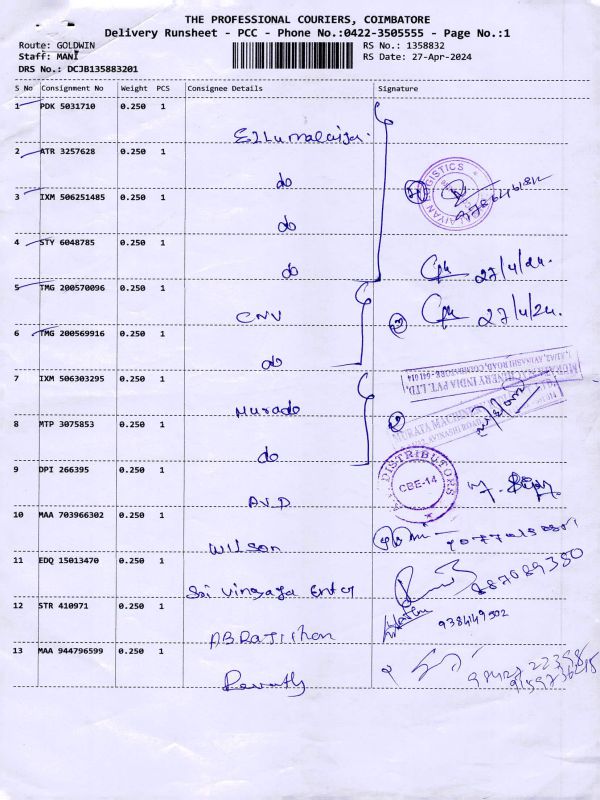 THE PROFESSIONAL COURIERS, COIMBATORE
Delivery Runsheet - PCC - Phone No.:0422-3505555 - Page No.:1
Route: GOLDWIN RS No.: 1358832
Staff: MANI RS Date: 27-Apr-2024
DRS No.: DCJB135883201
S No Consignment No Weight PCS Consignee Details Signature
1 PDK 5031710 0.250 1
2 ATR 3257628 0.250 1
do
3 IXM 506251485 0.250 1
do
4 STY 6048785 0.250 1
do 27/4/24.
5 TMG 200570096 0.250 1
CNV 27/4/24.
6 TMG 200569916 0.250 1
do
MURATA MACHINERY INDIA PVT. LTD.
7 IXM 506303295 0.250 1
Murado
8 MTP 3075853 0.250 1
do
9 DPI 266395 0.250 1
DISTRIBUTORS
CBE-14
AVD
10 MAA 703966302 0.250 1
Wilson
11 EDQ 15013470 0.250 1
Sri Vinayaga Enter
12 STR 410971 0.250 1
9384149502
13 MAA 944796599 0.250 1
Revathy